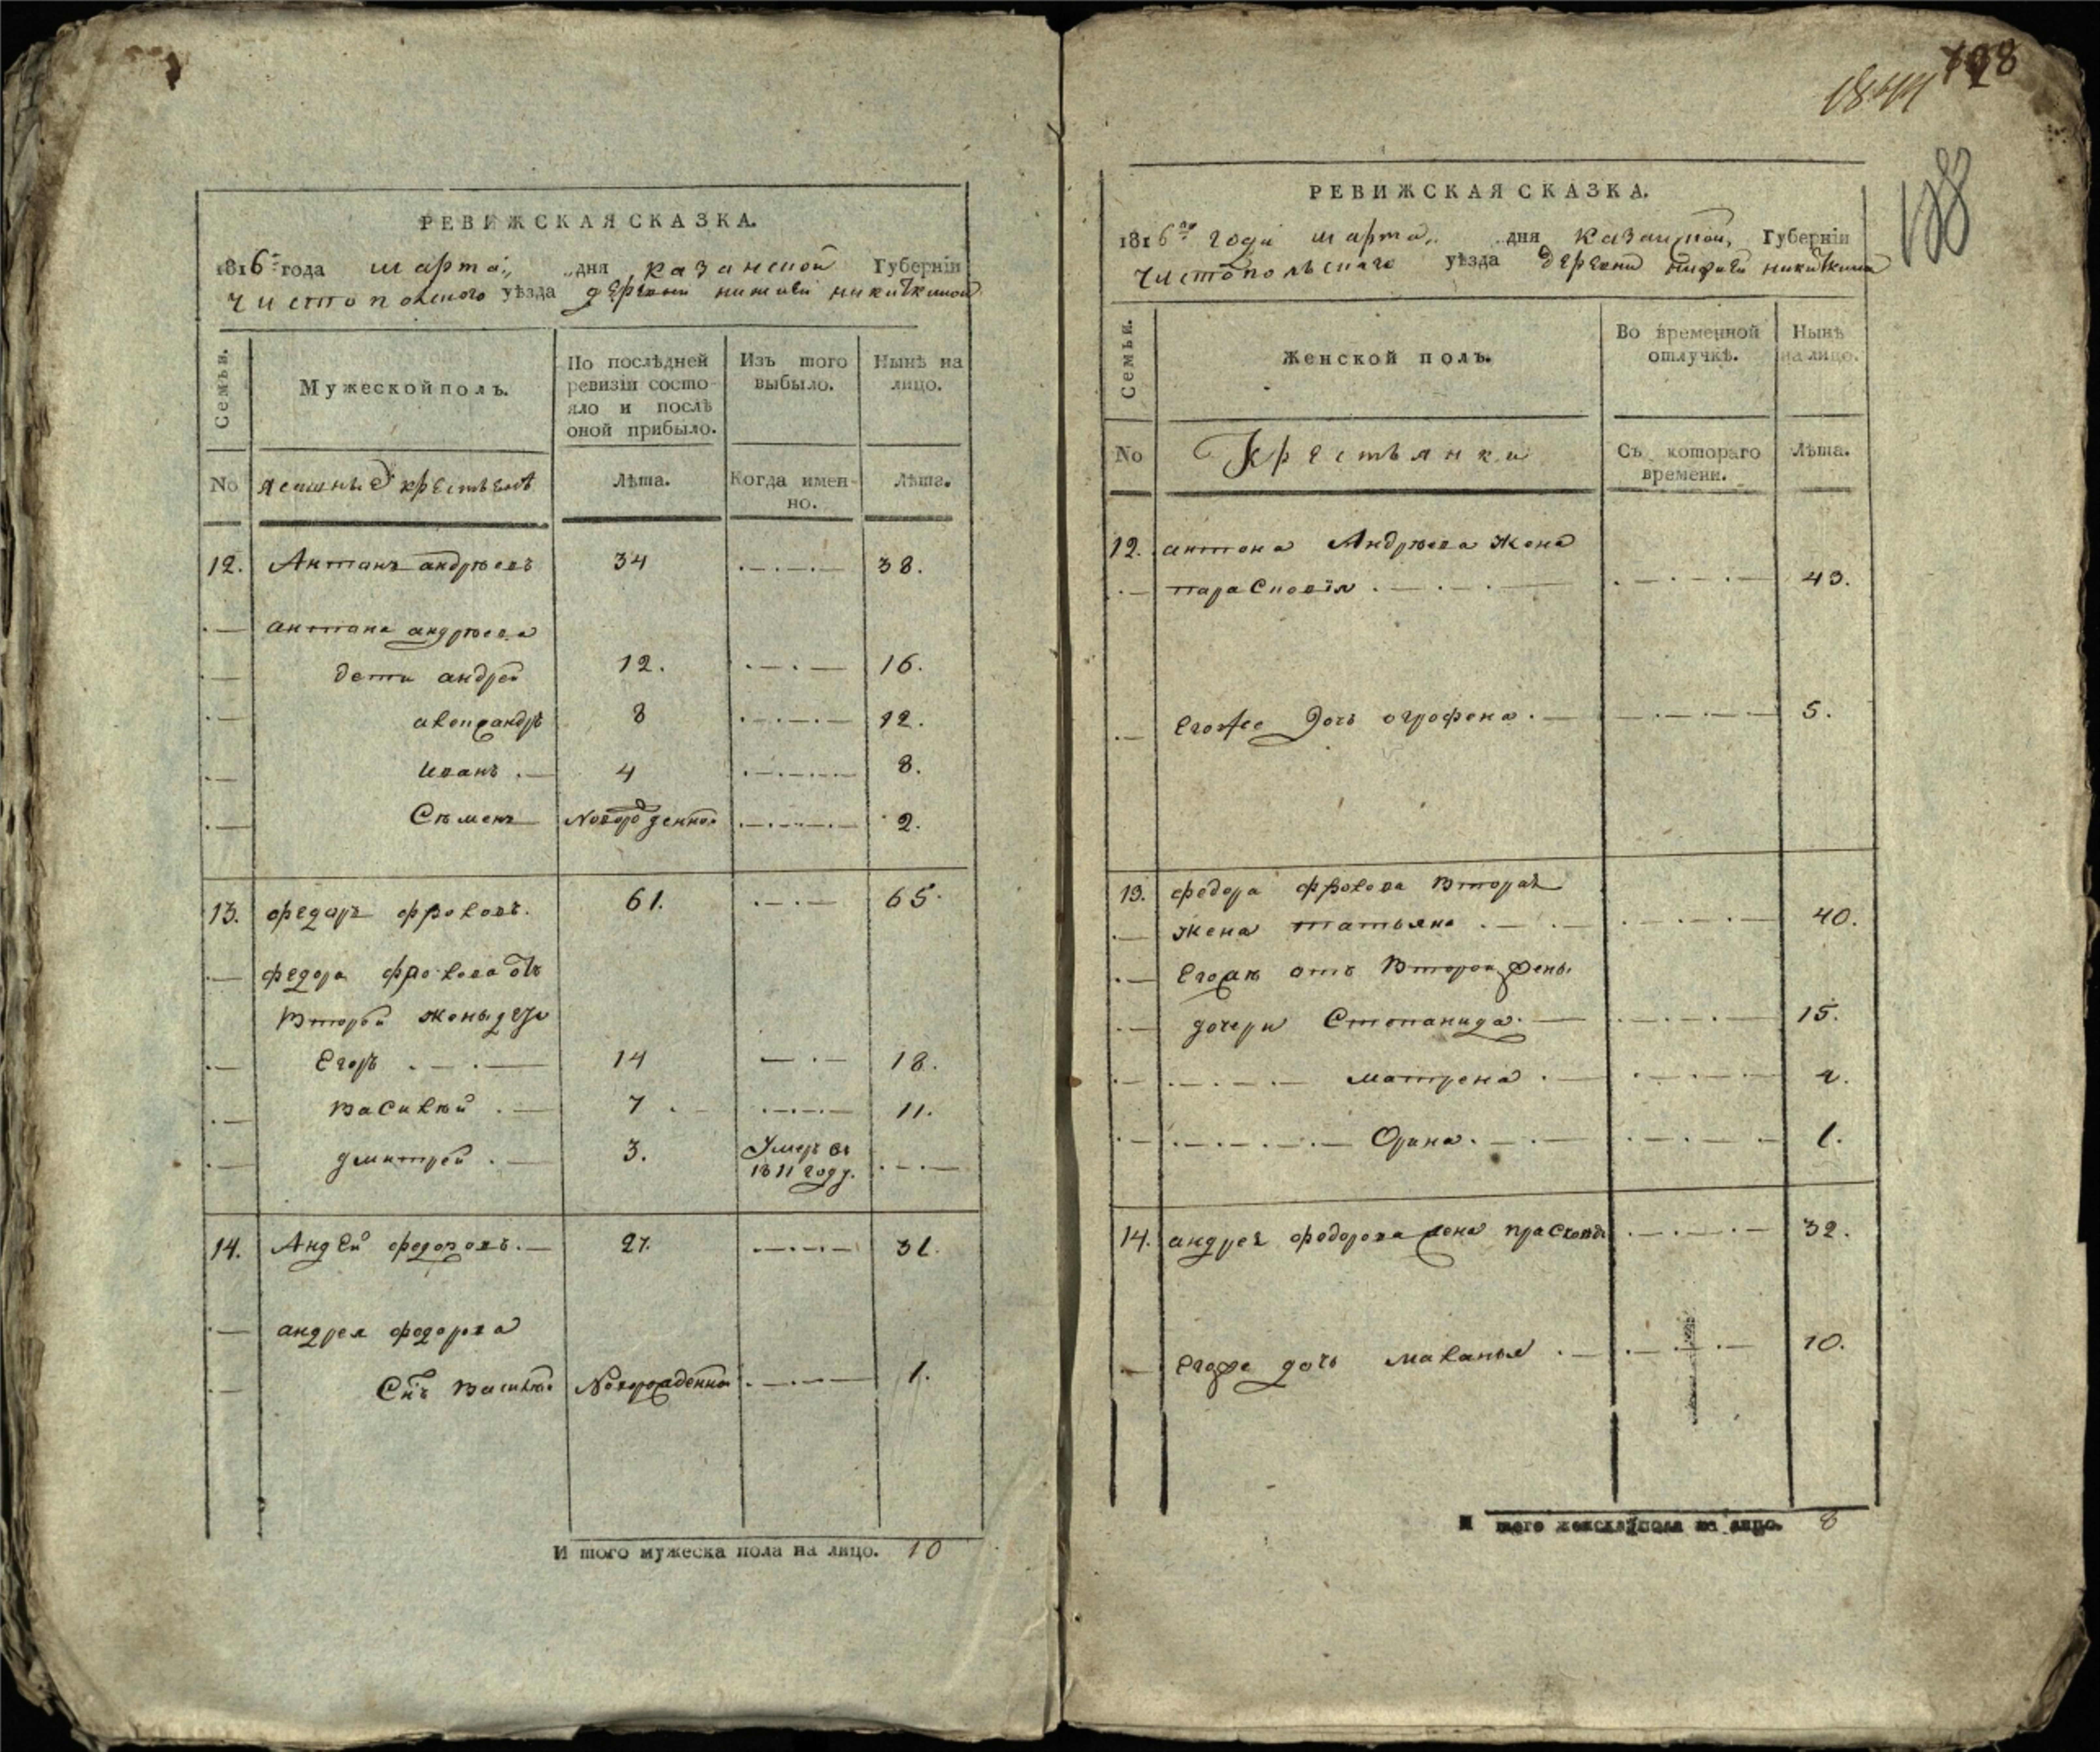 РЕВИЖСКАЯ СКАЗКА.
1816 года марта „ „ дня казанской Губерніи
чистополского уѣзда деревни нижней никиткиной
Семьи.
Мужеской полъ.
По послѣдней
ревизіи состо-
яло и послѣ
оной прибыло.
Изъ того
выбыло.
Нынѣ на
лицо.
No
ясашные крестьяне
Лѣта.
Когда имен-
но.
Лѣта.
12. Антонъ андрѣевъ 34 38.
антона андрѣева
дети андрей 12. 16.
александръ 8 12.
Иванъ 4 8.
Сѣменъ Новорожденной 2.
13. федоръ фроловъ. 61. 65.
федора фролова отъ
Второй жены дети
Егоръ 14 18.
василѣй 7 11.
дмитрей 3. Умеръ въ
1811 году.
14. Андрей федоровъ. 27. 31.
андрея федорова
Снъ василей Новорожденной 1.
И того мужеска пола на лицо. 10
1844 128
188
РЕВИЖСКАЯ СКАЗКА.
1816го года марта „ „ дня казанской, Губерніи
чистопольского уѣзда деревни нижней никиткиной
Семьи.
Женской полъ.
Во временной
отлучкѣ.
Нынѣ
на лицо.
No
Крестьянки
Съ котораго
времени.
Лѣта.
12. антона Андрѣева Жена
парасковія 43.
Егоже Дочь огрофена 5.
13. федора фролова Вторая
жена татьяна 40.
Егоже отъ Второй жены
дочери Степанида 15.
матрена
Орина. 1.
14. андрея федорова жена прасковья 32.
Егоже дочь маланья 10.
И того женска пола на лицо. 8